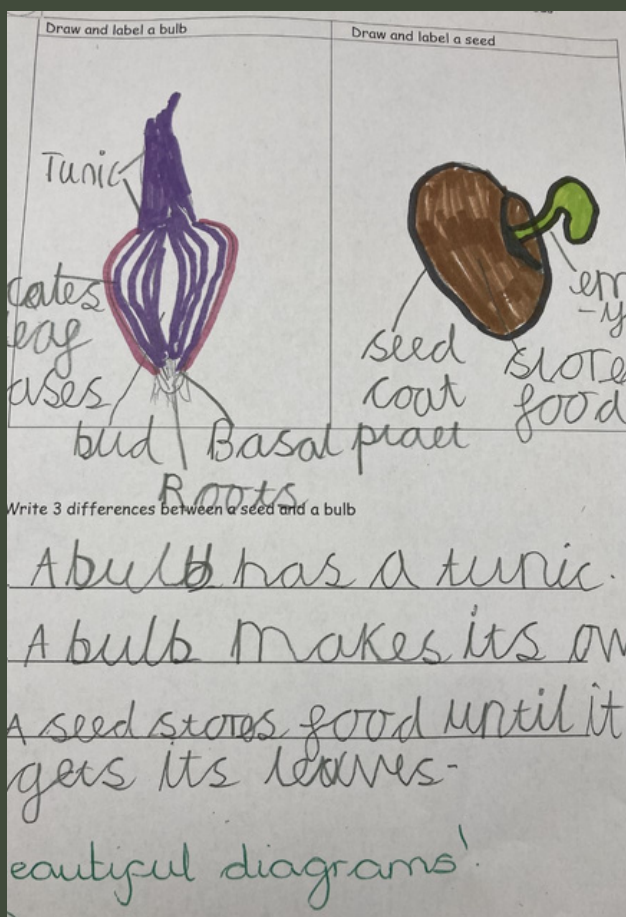 Draw and label a bulb
Draw and label a seed
Tunic
cates
eaf
ases
bud
Basal plaet
Roots
seed
coat
store
food
em
-y
Write 3 differences between a seed and a bulb
A bulb has a tunic.
A bulb makes its ow
A seed stores food until it
gets its leaves-
eautiful diagrams!